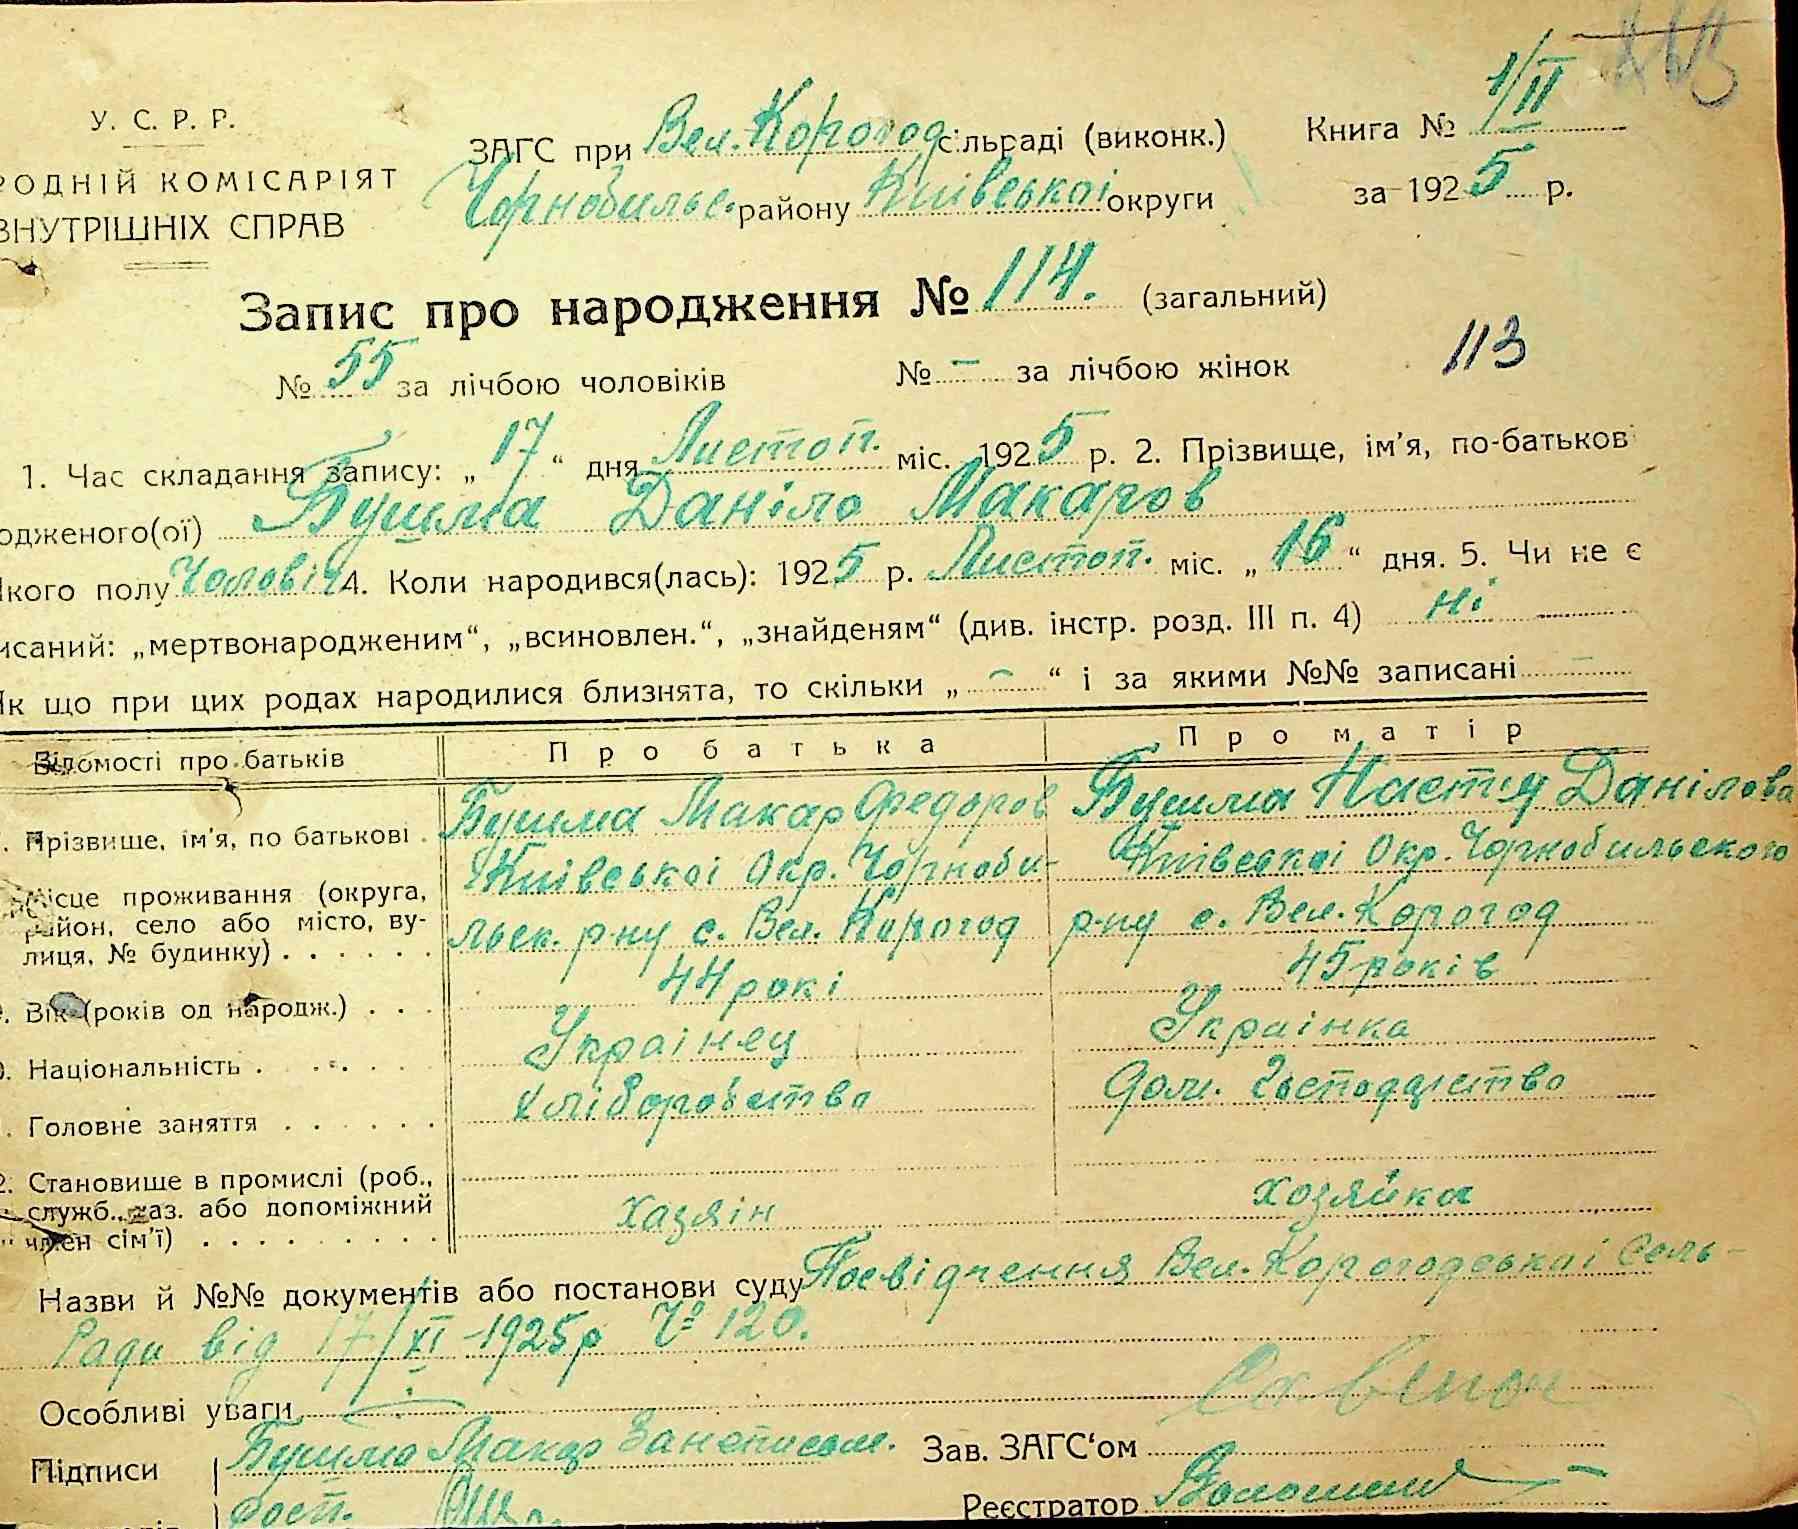 У. С. Р. Р.
РОДНІЙ КОМІСАРІЯТ
ВНУТРІШНІХ СПРАВ
ЗАГС при Вел. Корогод сільраді (виконк.)
Чорнобильс. району Київської округи
Книга № 1/II
за 1925 р.
Запис про народження № 114. (загальний)
№ 55 за лічбою чоловіків № – за лічбою жінок 113
1. Час складання запису: „ 17 “ дня Листоп. міс. 1925 р. 2. Прізвище, ім'я, по-батькові
одженого(ої) Бушма Даніло Макаров
якого полу Чоловіч 4. Коли народився(лась): 1925 р. Листоп. міс. „ 16 “ дня. 5. Чи не є
исаний: „мертвонародженим“, „всиновлен.“, „знайденям“ (див. інстр. розд. III п. 4) ні
Як що при цих родах народилися близнята, то скільки „ – “ і за якими №№ записані –
Відомості про батьків Про батька Про матір
Прізвище, ім'я, по батькові . Бушма Макар Федоров Бушма Настя Данілова
Місце проживання (округа, район, село або місто, вулиця, № будинку) . . . . . .
Київської Окр. Чорноби-
льск. р-ну с. Вел. Корогод
Київської Окр. Чорнобильского
р-ну с. Вел. Корогод
Вік (років од народж.) . . . 44 рокі 45 років
0. Національність . . . . . Українец Українка
. Головне заняття . . . . . . хліборобство дом. господарство
2. Становище в промислі (роб., служб., хаз. або допоміжний член сім'ї) . . . . . . . . .
хазяін хозяйка
Назви й №№ документів або постанови суду Посвідчення Вел. Корогодської Сель-
Ради від 17/XI 1925р № 120.
Особливі уваги
Підписи Бушма Макар Зав. ЗАГС'ом
Реєстратор